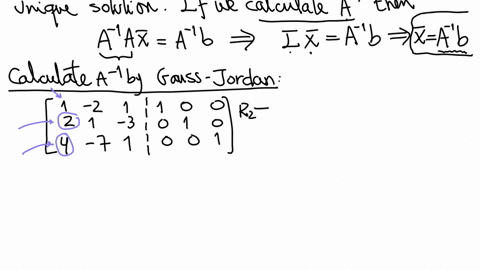 Unique solution. If we calculate A⁻¹ then
A⁻¹Ax̄ = A⁻¹b ⇒ I x̄ = A⁻¹b ⇒ x̄ = A⁻¹b
Calculate A⁻¹ by Gauss-Jordan:
1 -2 1 | 1 0 0 R₂—
2 1 -3 | 0 1 0
4 -7 1 | 0 0 1